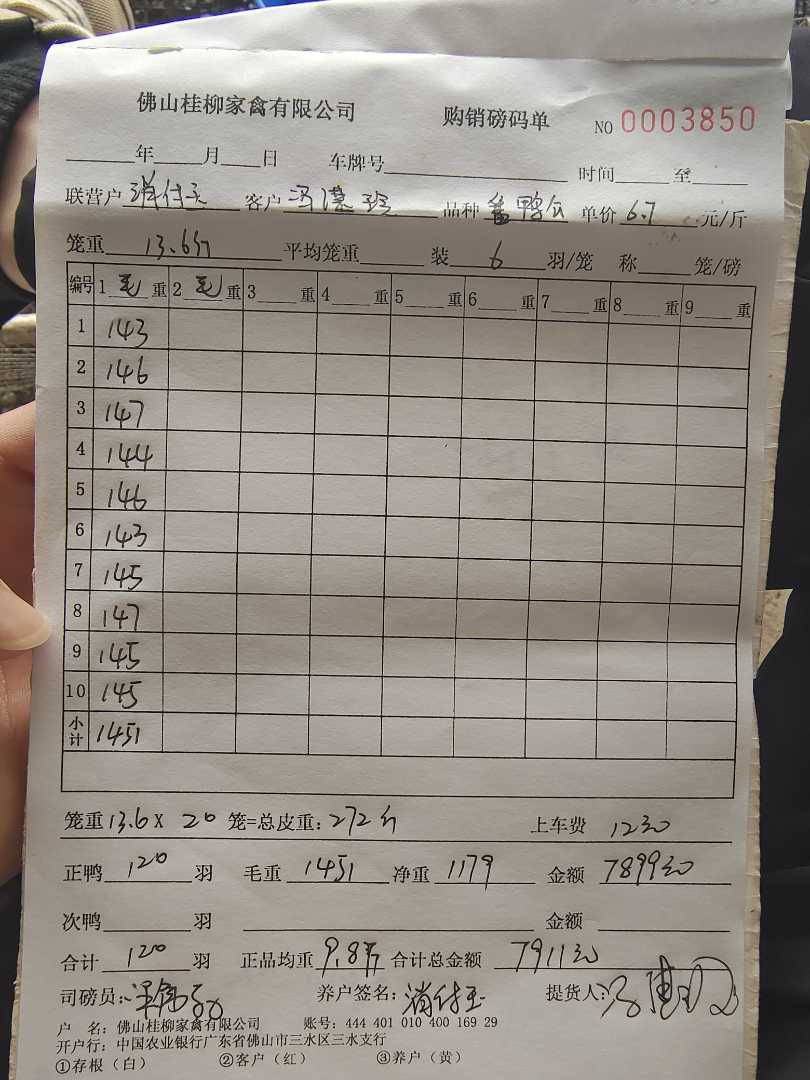 佛山桂柳家禽有限公司 购销磅码单 NO 0003850
年 月 日 车牌号 时间 至
联营户 客户 品种 鸭公 单价 6.7 元/斤
笼重 13.6斤 平均笼重 装 6 羽/笼 称 笼/磅
编号 1 毛 重 2 毛 重 3 重 4 重 5 重 6 重 7 重 8 重 9 重
1 143
2 146
3 147
4 144
5 146
6 143
7 145
8 147
9 145
10 145
小计 1451
笼重 13.6 X 20 笼=总皮重: 272斤 上车费 12元
正鸭 120 羽 毛重 1451 净重 1179 金额 7899元
次鸭 羽 金额
合计 120 羽 正品均重 9.8斤 合计总金额 7911元
司磅员: 养户签名: 提货人:
户 名: 佛山桂柳家禽有限公司 账号: 444 401 010 400 169 29
开户行: 中国农业银行广东省佛山市三水区三水支行
①存根（白） ②客户（红） ③养户（黄）